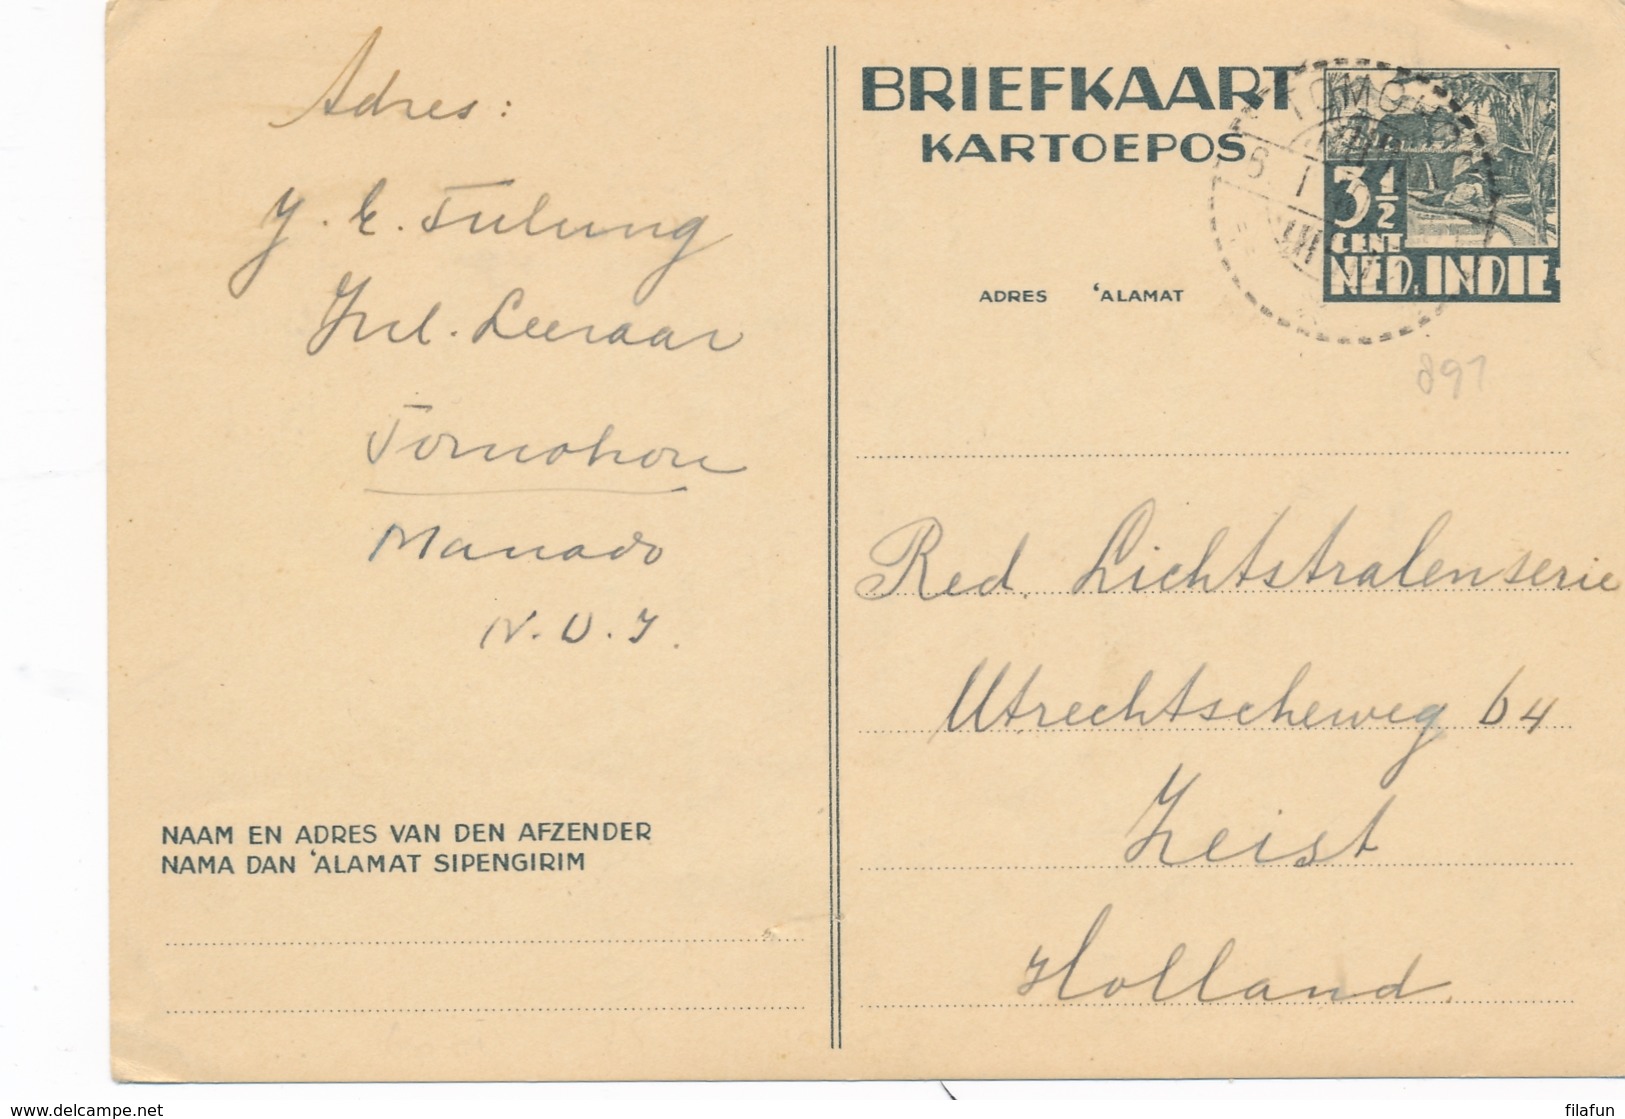 Adres:
J. E. Tulung
Inl. Leeraar
Tomohon
Manado
N.O.I.
NAAM EN ADRES VAN DEN AFZENDER
NAMA DAN 'ALAMAT SIPENGIRIM
BRIEFKAART
KARTOEPOS
3 1/2
CENT
NED. INDIE
ADRES 'ALAMAT
891
Red. Lichtstralenserie
Utrechtscheweg 64
Zeist
Holland.
www.delcampe.net
filafun